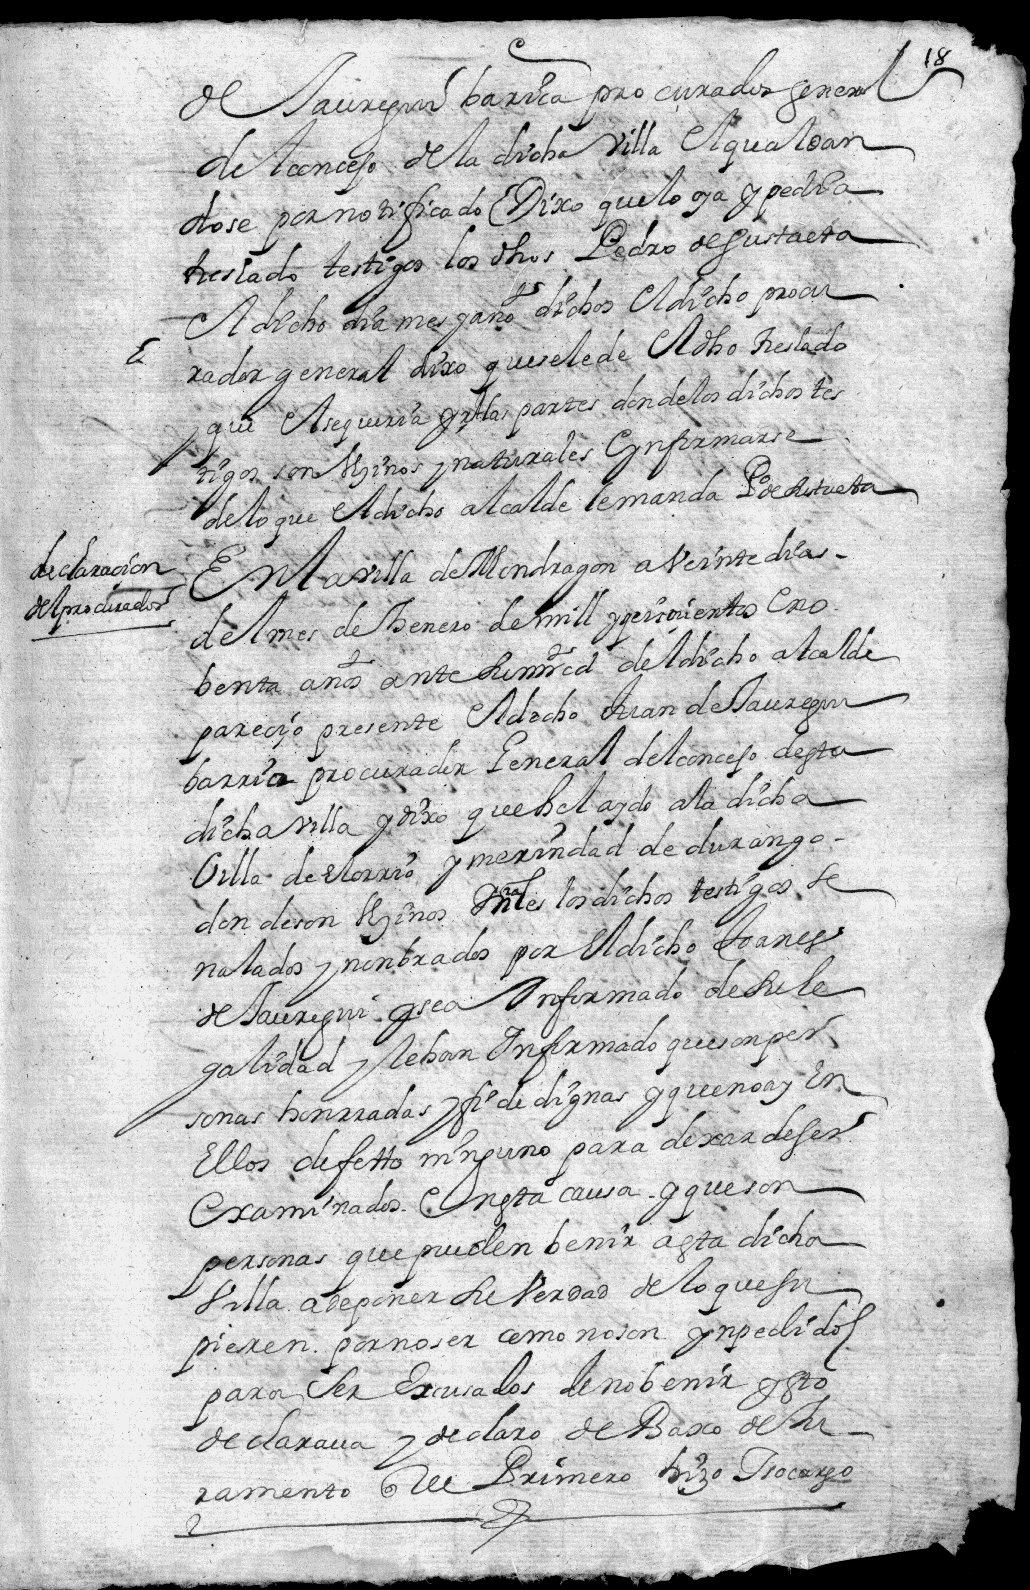 18
de Jauregui barrica procurador general
del concejo de la dicha villa El qual dan
dose por notificado Dixo que lo oya y pedia
treslado testigos los dhos Pedro de Gustaeta
El dicho dia mes y año dichos El dicho procu
rador general dixo que se le de El dho treslado
que El se queria yr a las partes donde los dichos tes
tigos son Vzinos y naturales E ynformarse
de lo que El dicho alcalde le manda Po de
declaracion
del procurador
En la villa de Mondragon a Veinte dias
del mes de Henero de mill y seiscientos E no
benta años ante su mrcd del dicho alcalde
parecio presente El dicho Juan de Jauregui
barrica procurador General del concejo desta
dicha villa y dixo que hel a ydo a la dicha
Villa de elorrio y merindad de durango
donde son Vzinos E nrales los dichos testigos se
nalados y nonbrados por El dicho Joanes
de Jauregui y se a Informado de su le
galidad y le han Informado que son per
sonas honrradas y fee de dignas y que no ay En
Ellos defetto ninguno para dexar de ser
Examinados En esta causa y que son
personas que pueden benir a esta dicha
Villa a deponer su Verdad de lo que su
pieren por no ser como no son ynpedidos
para ser Excusados de no benir y esto
declaraua y declaro de Baxo de Ju
ramento que Primero hizo so cargo